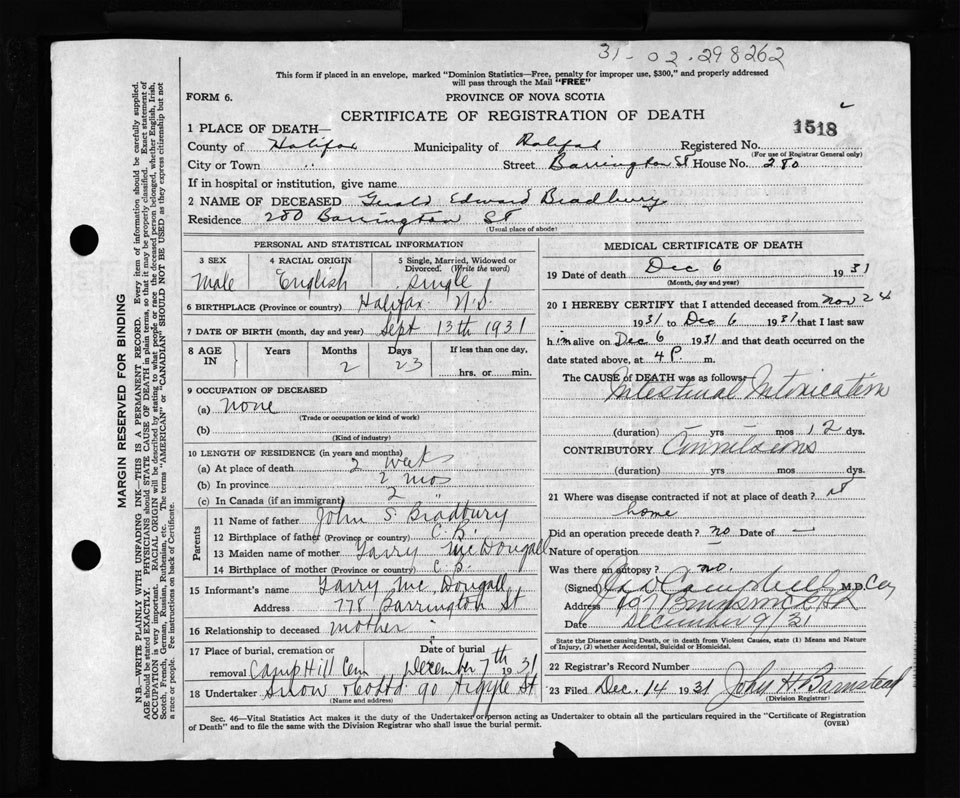 31-02-298262
This form if placed in an envelope, marked "Dominion Statistics—Free, penalty for improper use, $300," and properly addressed
will pass through the Mail "FREE"
FORM 6.
PROVINCE OF NOVA SCOTIA
CERTIFICATE OF REGISTRATION OF DEATH
1518
1 PLACE OF DEATH—
County of Halifax Municipality of Halifax Registered No.
(For use of Registrar General only)
City or Town " Street Barrington St House No. 280
If in hospital or institution, give name
2 NAME OF DECEASED Gerald Edward Bradbury
Residence 280 Barrington St
(Usual place of abode)
PERSONAL AND STATISTICAL INFORMATION
3 SEX 4 RACIAL ORIGIN 5 Single, Married, Widowed or
Divorced. (Write the word)
Male English single
6 BIRTHPLACE (Province or country) Halifax N.S.
7 DATE OF BIRTH (month, day and year) Sept 13th 1931
8 AGE IN Years Months Days If less than one day,
2 23 hrs. or min.
9 OCCUPATION OF DECEASED
(a) none
(Trade or occupation or kind of work)
(b)
(Kind of industry)
10 LENGTH OF RESIDENCE (in years and months)
(a) At place of death 2 weeks
(b) In province 2 mos
(c) In Canada (if an immigrant) 2 "
Parents
11 Name of father John S Bradbury
12 Birthplace of father (Province or country) C.B.
13 Maiden name of mother McDougall
14 Birthplace of mother (Province or country) C.B.
15 Informant's name McDougall
Address 778 Barrington St
16 Relationship to deceased mother
17 Place of burial, cremation or Date of burial
removal Camp Hill Cem December 7th 1931
18 Undertaker Snow & Co Ltd. 90 Argyle St
(Name and address)
MEDICAL CERTIFICATE OF DEATH
19 Date of death Dec 6 1931
(Month, day and year)
20 I HEREBY CERTIFY that I attended deceased from Nov 24
1931 to Dec 6 1931 that I last saw
him alive on Dec 6 1931 and that death occurred on the
date stated above, at 4 P m.
The CAUSE of DEATH was as follows:
Intestinal Intoxication
(duration) yrs mos 12 dys.
CONTRIBUTORY
(duration) yrs mos dys.
21 Where was disease contracted if not at place of death? at
home
Did an operation precede death? no Date of —
Nature of operation
Was there an autopsy? no.
(Signed) Campbell M.D.
Address 407 Brunswick St
Date December 9/31
State the Disease causing Death, or in death from Violent Causes, state (1) Means and Nature
of Injury, (2) whether Accidental, Suicidal or Homicidal.
22 Registrar's Record Number
23 Filed Dec. 14 1931 John H. Barnstead
(Division Registrar)
Sec. 46—Vital Statistics Act makes it the duty of the Undertaker or person acting as Undertaker to obtain all the particulars required in the "Certificate of Registration
of Death" and to file the same with the Division Registrar who shall issue the burial permit.
(OVER)
MARGIN RESERVED FOR BINDING
N.B.—WRITE PLAINLY WITH UNFADING INK—THIS IS A PERMANENT RECORD. Every item of information should be carefully supplied.
AGE should be stated EXACTLY. PHYSICIANS should STATE CAUSE OF DEATH in plain terms, so that it may be properly classified. Exact statement of
OCCUPATION is very important. RACIAL ORIGIN will be described by stating to what people or race the deceased person belonged, whether English, Irish,
Scotch, French, German, Russian, Ruthenian, etc. The terms "AMERICAN" or "CANADIAN" SHOULD NOT BE USED as they express citizenship but not
a race or people. See instructions on back of Certificate.